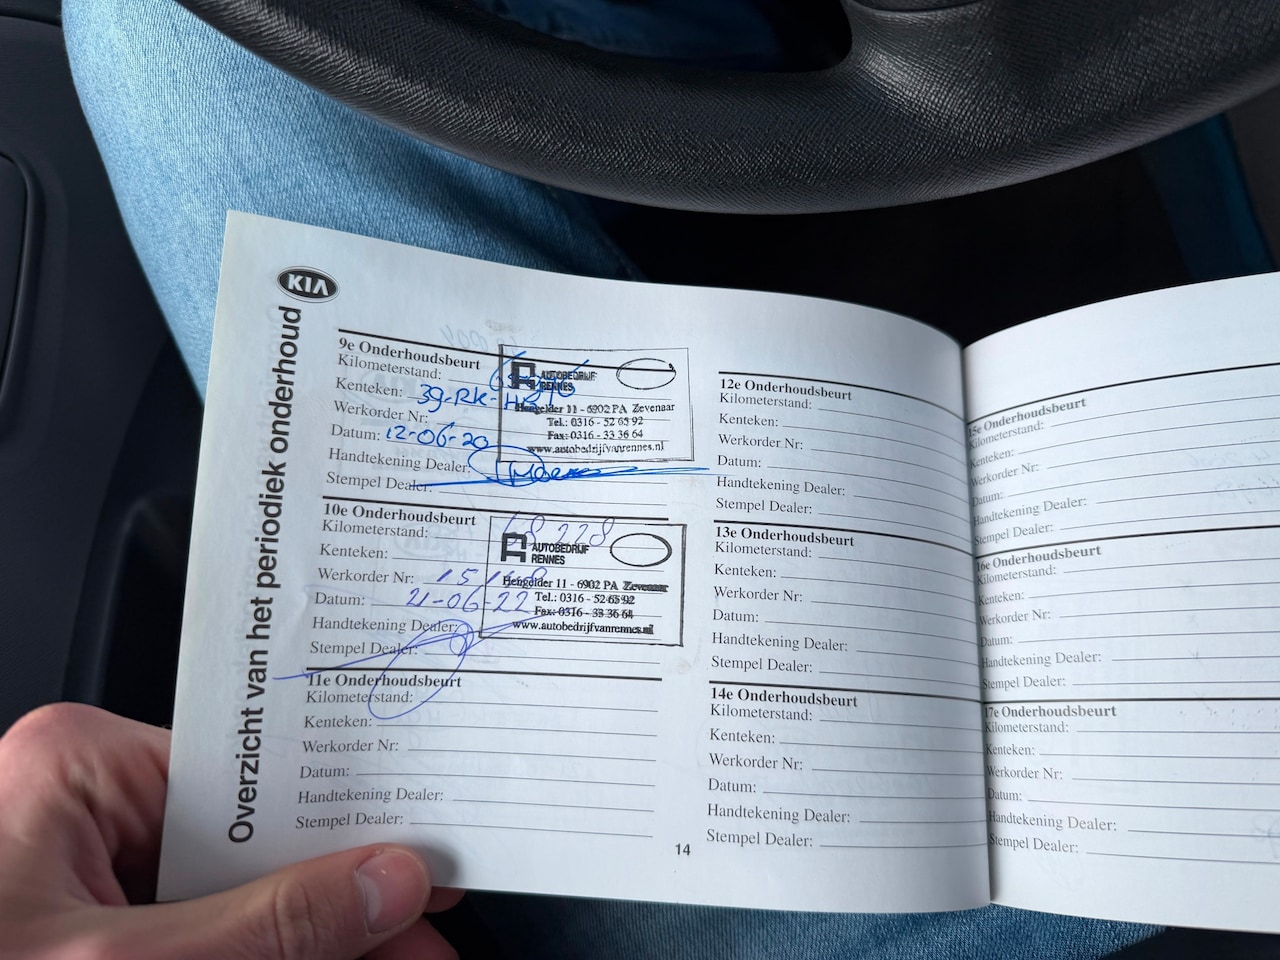 KIA
Overzicht van het periodiek onderhoud
9e Onderhoudsbeurt
Kilometerstand:
Kenteken: 39-RK-
Werkorder Nr:
Datum: 12-06-20
Handtekening Dealer:
Stempel Dealer:
AUTOBEDRIJF
RENNES
Hengelder 11 - 6902 PA Zevenaar
Tel.: 0316 - 52 65 92
Fax: 0316 - 33 36 64
www.autobedrijfvanrennes.nl
10e Onderhoudsbeurt
Kilometerstand: 68 228
Kenteken:
Werkorder Nr:
Datum: 21-06-22
Handtekening Dealer:
Stempel Dealer:
AUTOBEDRIJF
RENNES
Hengelder 11 - 6902 PA Zevenaar
Tel.: 0316 - 52 65 92
Fax: 0316 - 33 36 64
www.autobedrijfvanrennes.nl
11e Onderhoudsbeurt
Kilometerstand:
Kenteken:
Werkorder Nr:
Datum:
Handtekening Dealer:
Stempel Dealer:
12e Onderhoudsbeurt
Kilometerstand:
Kenteken:
Werkorder Nr:
Datum:
Handtekening Dealer:
Stempel Dealer:
13e Onderhoudsbeurt
Kilometerstand:
Kenteken:
Werkorder Nr:
Datum:
Handtekening Dealer:
Stempel Dealer:
14e Onderhoudsbeurt
Kilometerstand:
Kenteken:
Werkorder Nr:
Datum:
Handtekening Dealer:
Stempel Dealer:
14
15e Onderhoudsbeurt
Kilometerstand:
Kenteken:
Werkorder Nr:
Datum:
Handtekening Dealer:
Stempel Dealer:
16e Onderhoudsbeurt
Kilometerstand:
Kenteken:
Werkorder Nr:
Datum:
Handtekening Dealer:
Stempel Dealer:
17e Onderhoudsbeurt
Kilometerstand:
Kenteken:
Werkorder Nr:
Datum:
Handtekening Dealer:
Stempel Dealer: